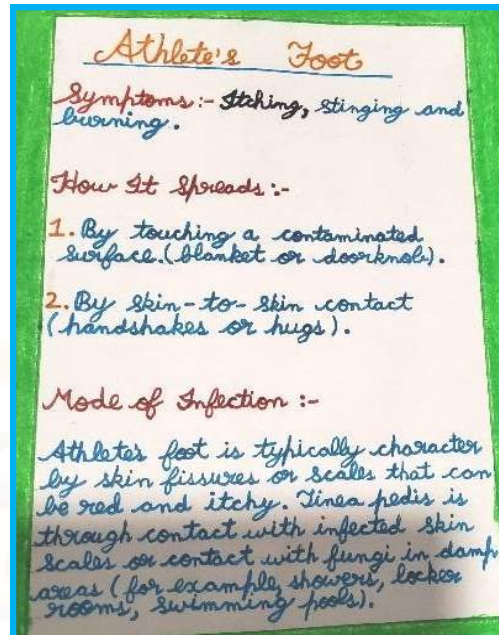 Athlete's Foot
Symptoms:- Itching, stinging and
burning.
How It Spreads:-
1. By touching a contaminated
surface.(blanket or doorknob).
2. By skin-to-skin contact
(handshakes or hugs).
Mode of Infection :-
Athlete's foot is typically character
by skin fissures or scales that can
be red and itchy. Tinea pedis is
through contact with infected skin
scales or contact with fungi in damp
areas (for example, showers, locker
rooms, swimming pools).